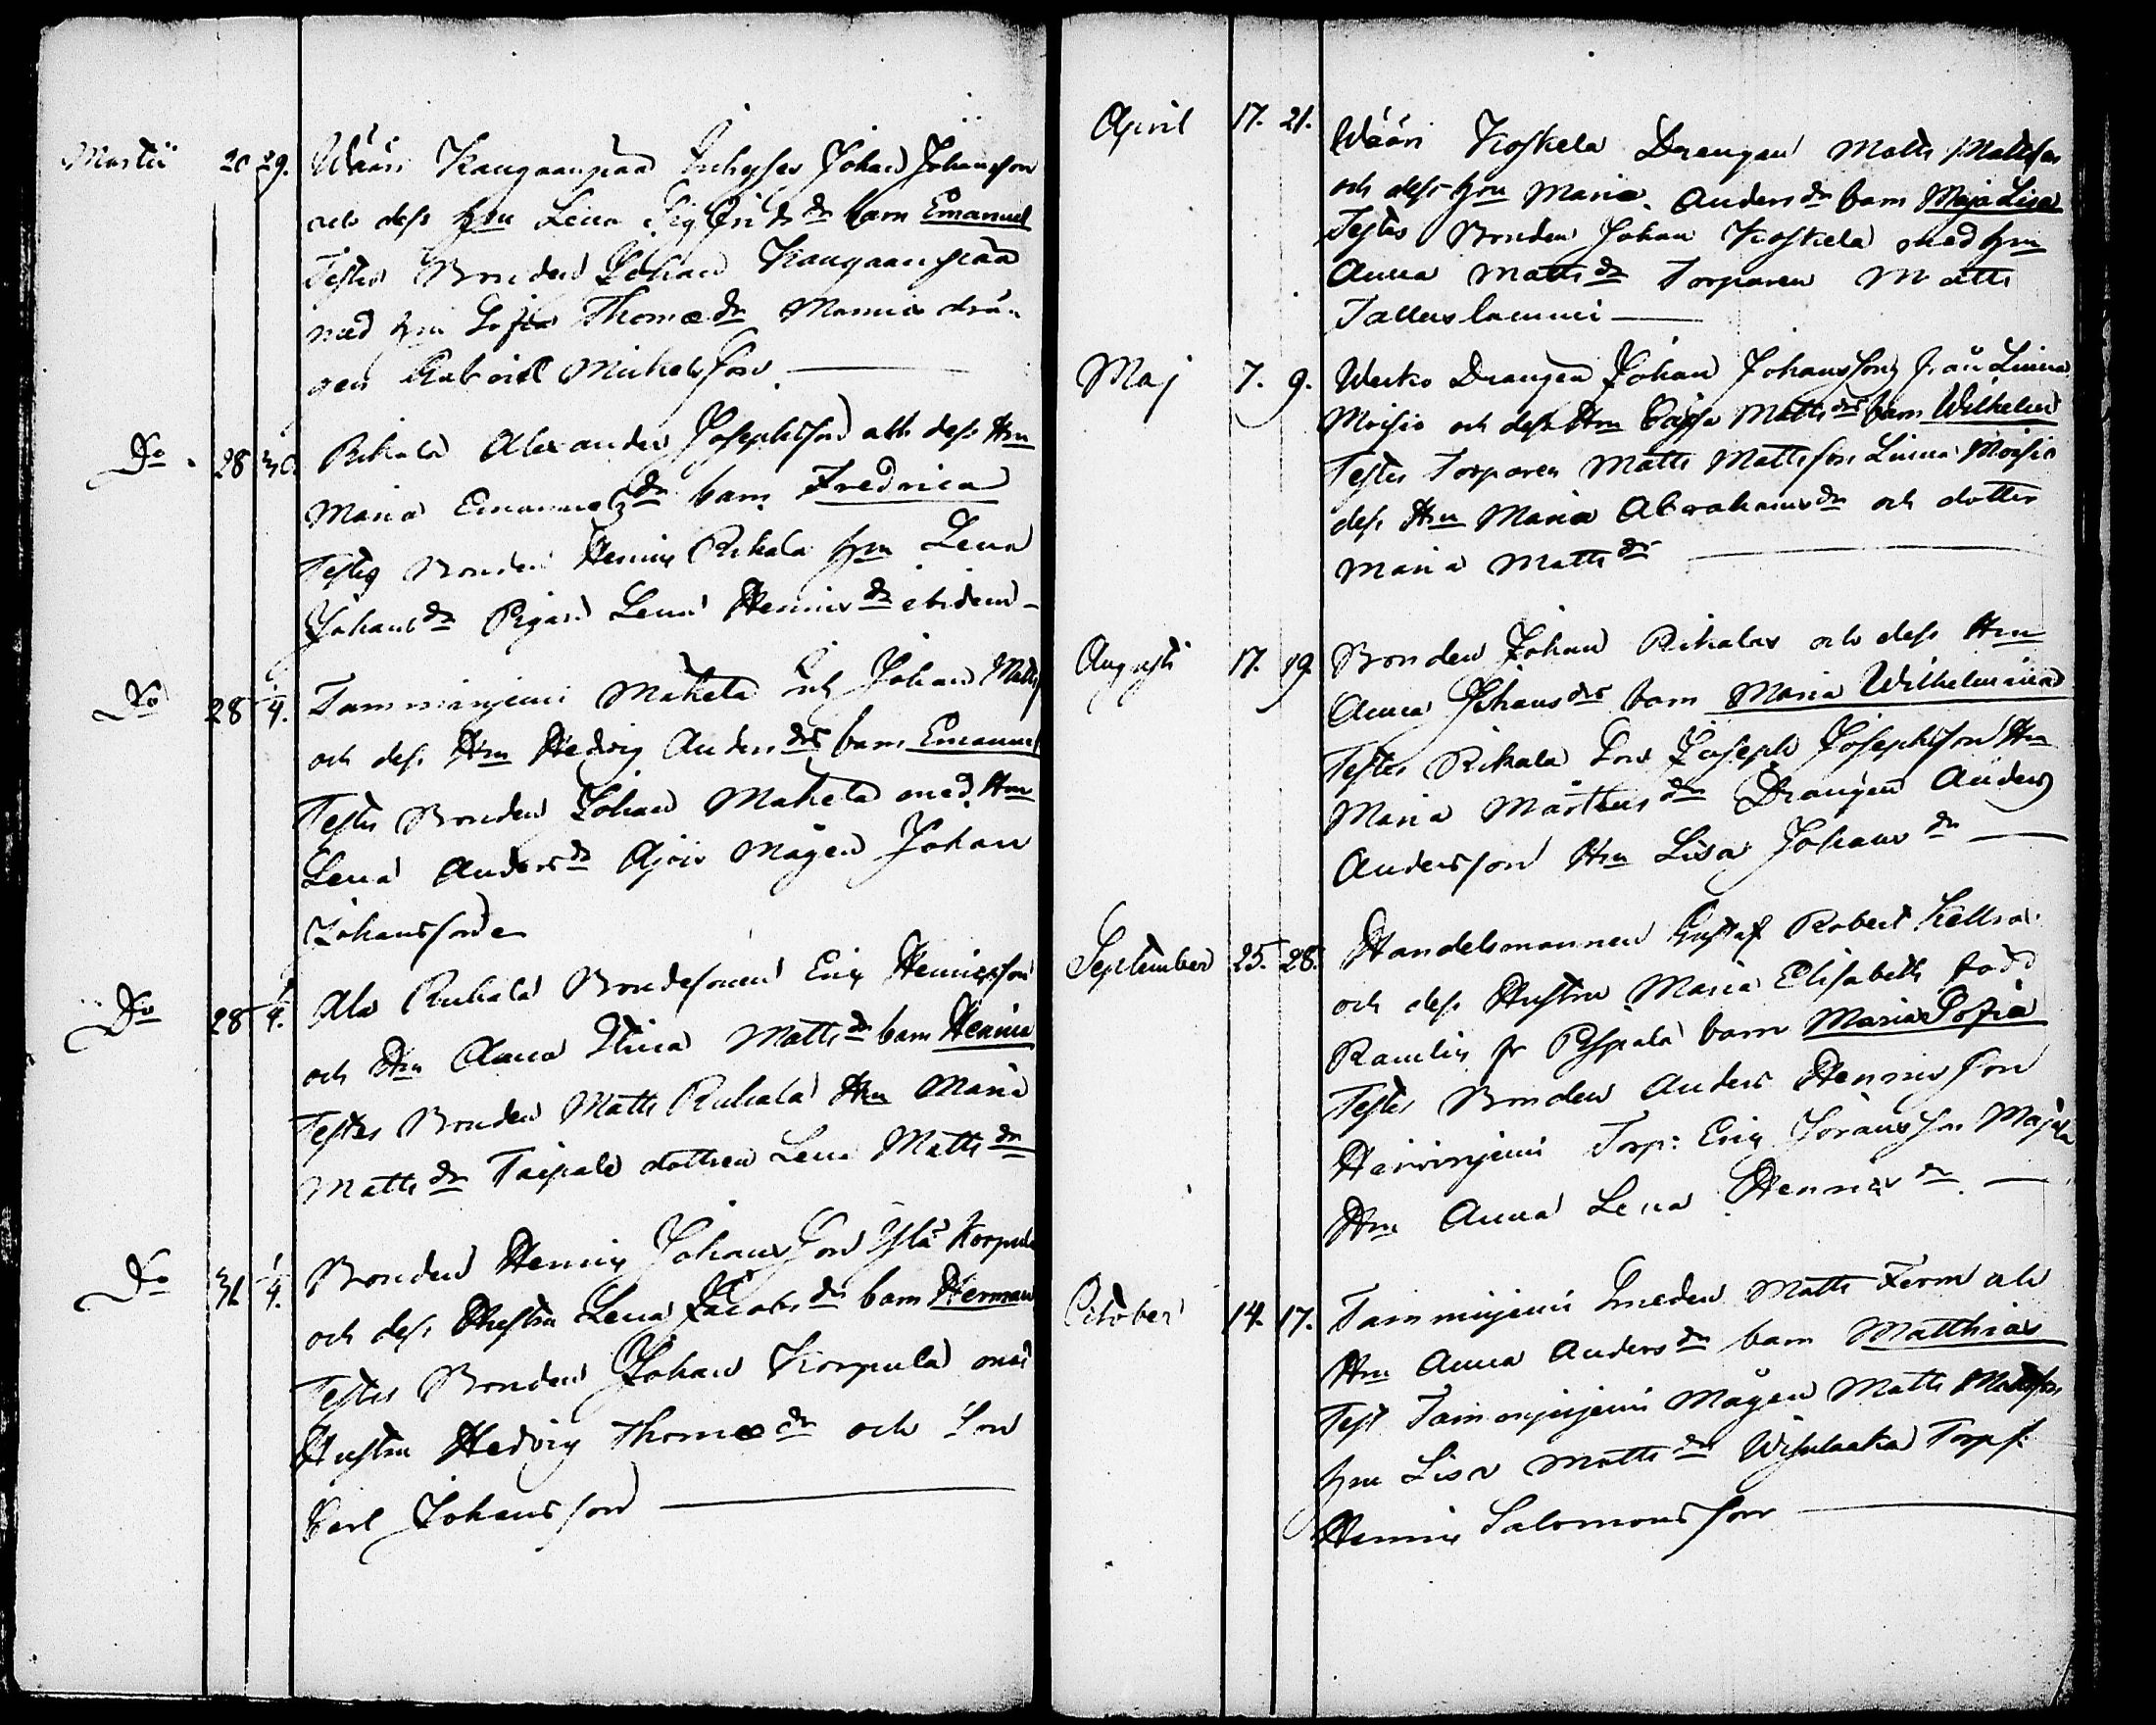 Martii 20 29. Wääri Kangaanpää Inhyses Johan Johansson
och dess hru Lena Sigfrids dr barn Emanuel
Testes Bonden Johan Kangaanpää
med hru Sofia Thomæ dr Mannis drän
gen Gabriel Michelsson
Do 28 30 Rikala Alexander Josephsson och dess Hru
Maria Emanuels dr barn Fredrica
Testes Bonden Henric Rikala hru Lena
Johans dr Pigan Lena Henrics dr ibidem
Do 28 1/4. Tamminjemi Mäkelä Inh Johan Matts
och dess Hru Hedvig Anders dr barn Emanuel
Testes Bonden Johan Mäkelä med Hru
Lena Anders dr Mågen Johan
Johansson
Do 28 1/4. Ala Ruhala Bondesonen Eric Henricsson
och Hru Anna Stina Matts dr barn Henrica
Testes Bonden Matts Ruhala Hru Maria
Matts dr Taipale dottren Lena Matts dr
Do 31 1/4. Bonden Henric Johansson Ylä Korpula
och dess Hustru Lena Jacobs dr barn Herman
Testes Bonden Johan Korpula med
Hustru Hedvig Thomæ dr och Son
Carl Johansson
April 17. 21. Wääri Koskela Drengen Matts Mattsson
och dess hru Maria Anders dr barn Maja Lisa
Testes Bonden Johan Koskela med hru
Anna Matts dr Torparen Matts
Tallus lammi
Maj 7. 9. Werko Drangen Johan Johansson från Linna
Moisio och dess Hru Cajsa Matts dr barn Wilhelm
Testes Torparen Matts Mattsson Linna Moisio
dess Hru Maria Abrahams dr och dotter
Maria Matts dr
Augusti 17. 19. Bonden Johan Rikalas och dess Hru
Anna Johans dr barn Maria Wilhelmina
Testes Rikala Son Joseph Josephsson Hru
Maria Mårtens dr Drängen Anders
Andersson Hru Lisa Johans dr
September 25. 28. Handelsmannen Gustaf Robert Hellra
och dess Hustru Maria Elisabeth född
Ramlin fr barn Maria Sofia
Testes Bonden Anders Henricsson
Heinonjemi Torp: Eric Göransson Majala
Hru Anna Lena Henrics dr
October 14. 17. Tamminjemi Smeden Matts Ferm och
Hru Anna Anders dr barn Matthias
Test Tamminjemi Mågen Matts Mattsson
hru Lisa Matts dr Torps:
Henric Salomonsson